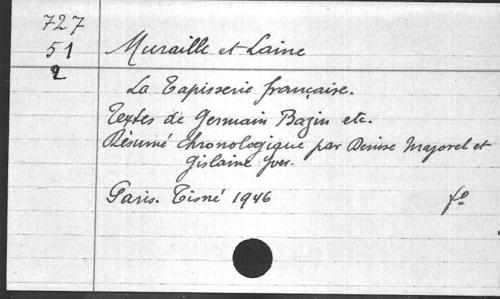 727
51
2
Muraille et Laine
La Tapisserie française.
Textes de Germain Bazin etc.
Résumé chronologique par Denise Majorel et
Gislaine Yver.
Paris. Tisné 1946 fo